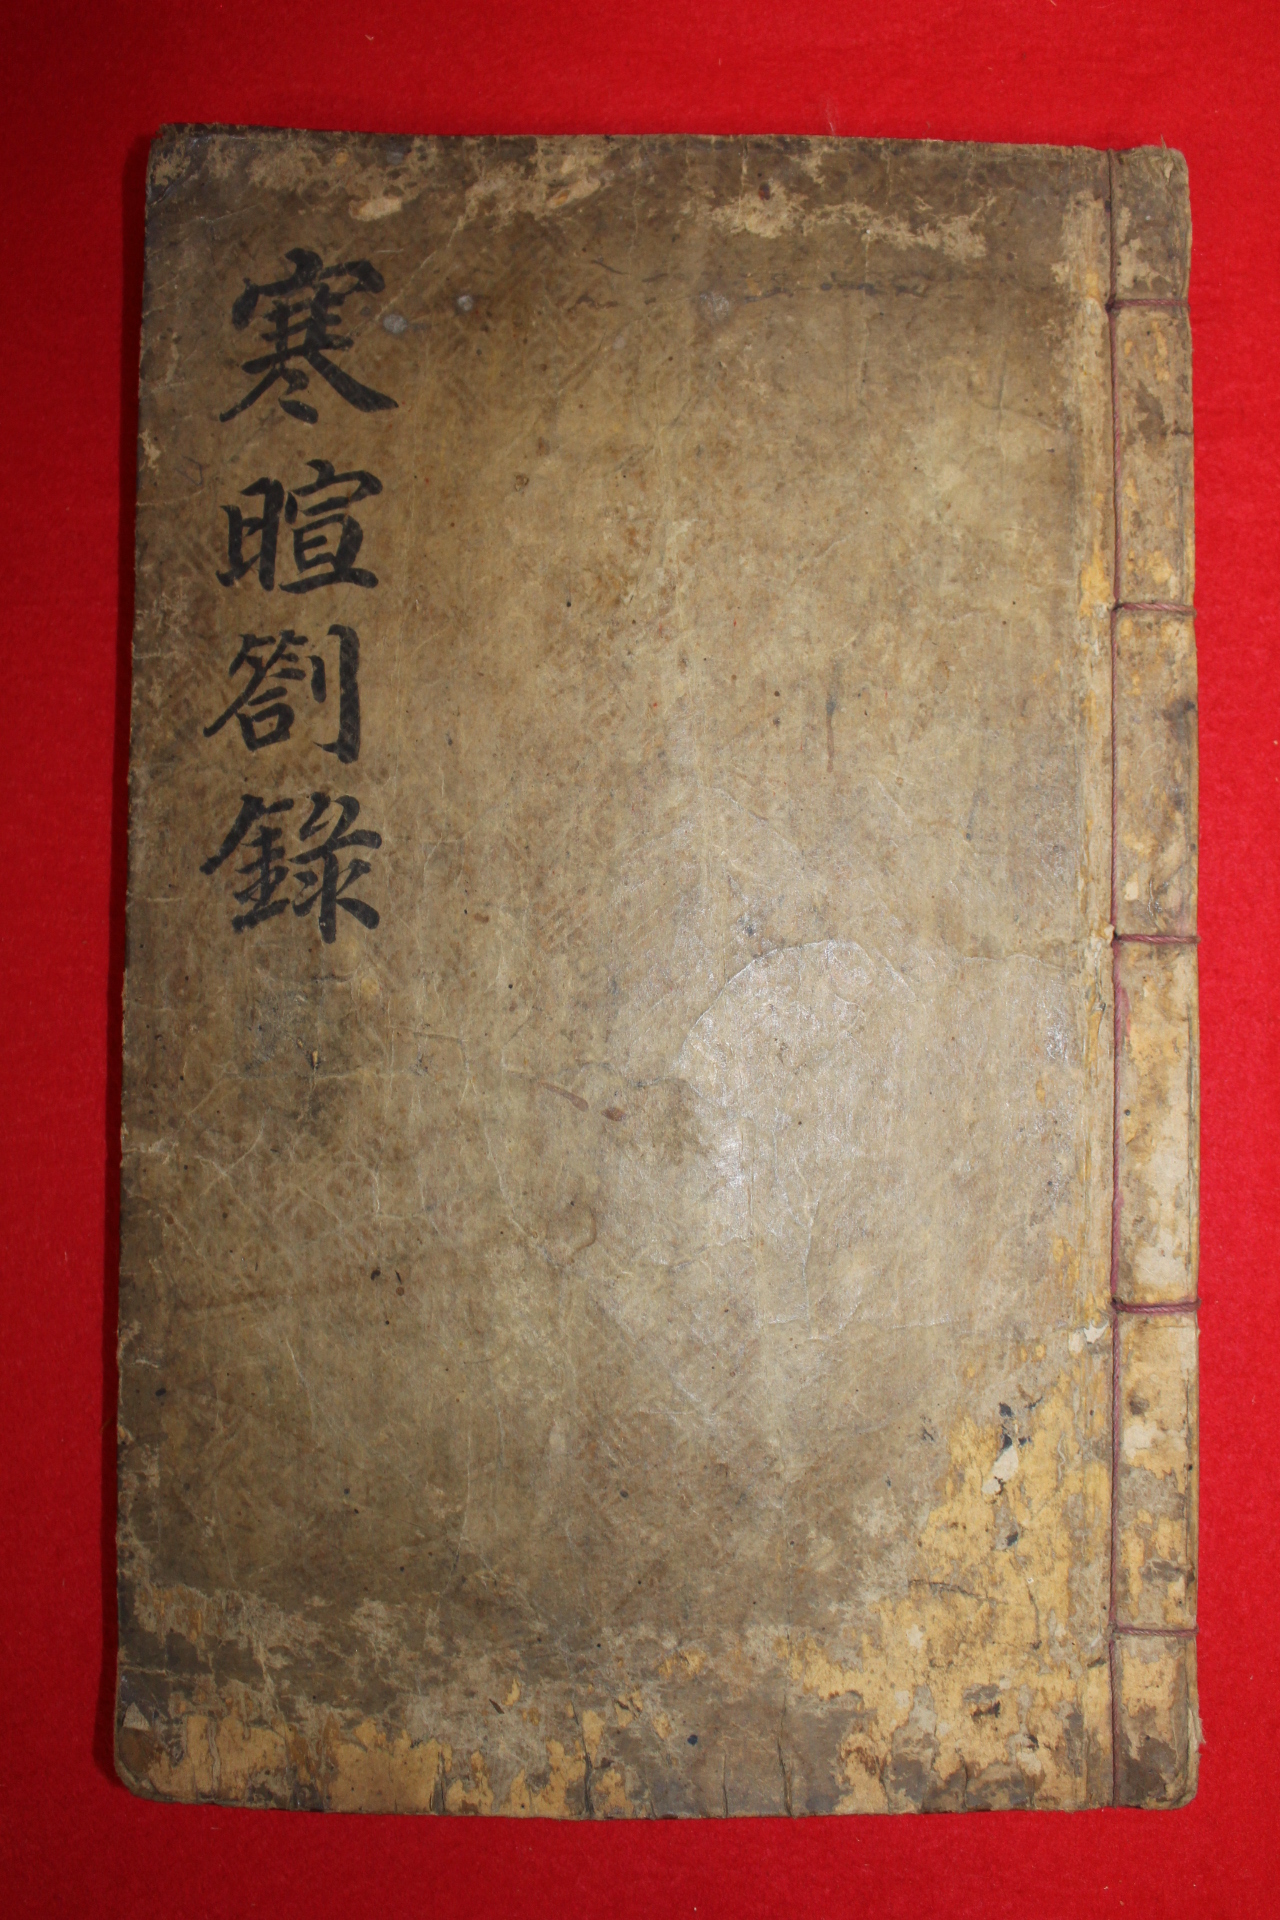 寒暄劄錄